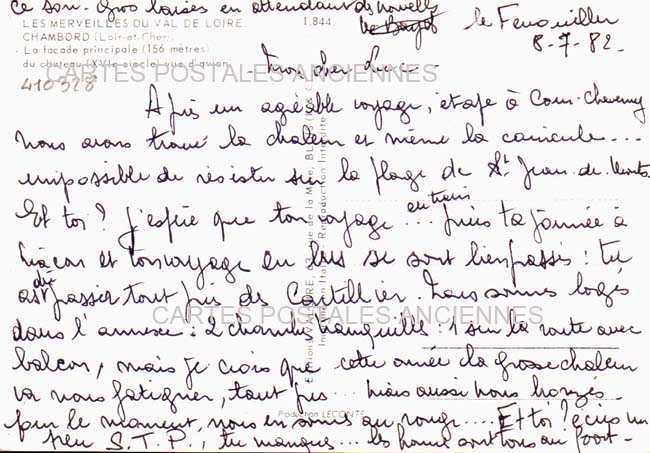 ce soir. Gros baisers en attendant des nouvelles
LES MERVEILLES DU VAL DE LOIRE
1.844
CHAMBORD (Loir-et-Cher)
- La façade principale (156 mètres)
du château (XVIe siècle) vue d'avion
410328
CARTES POSTALES ANCIENNES
le Fenouiller
8-7-82.
- Mon cher Luc -
Après un agréable voyage, étape à Cour-Cheverny
nous avons trouvé la chaleur et même la canicule...
impossible de résister sur la plage de St Jean-de-Monts
Et toi? j'espère que ton voyage en train... puis ta journée à
Mâcon et ton voyage en bus se sont bien passés: tu
as dû passer tout près de Cartillier. Nous sommes logés
CARTES POSTALES ANCIENNES
dans l'annexe: 2 chambres tranquilles: 1 sur la route avec
balcon, mais je crois que cette année la grosse chaleur
va nous fatiguer, tant pis... Mais aussi nous bronzés
pour le moment, nous en sommes au rouge.... Et toi? écris un
Production LECONTE
peu S.T.P., tu manques... les hommes sont tous au foot-